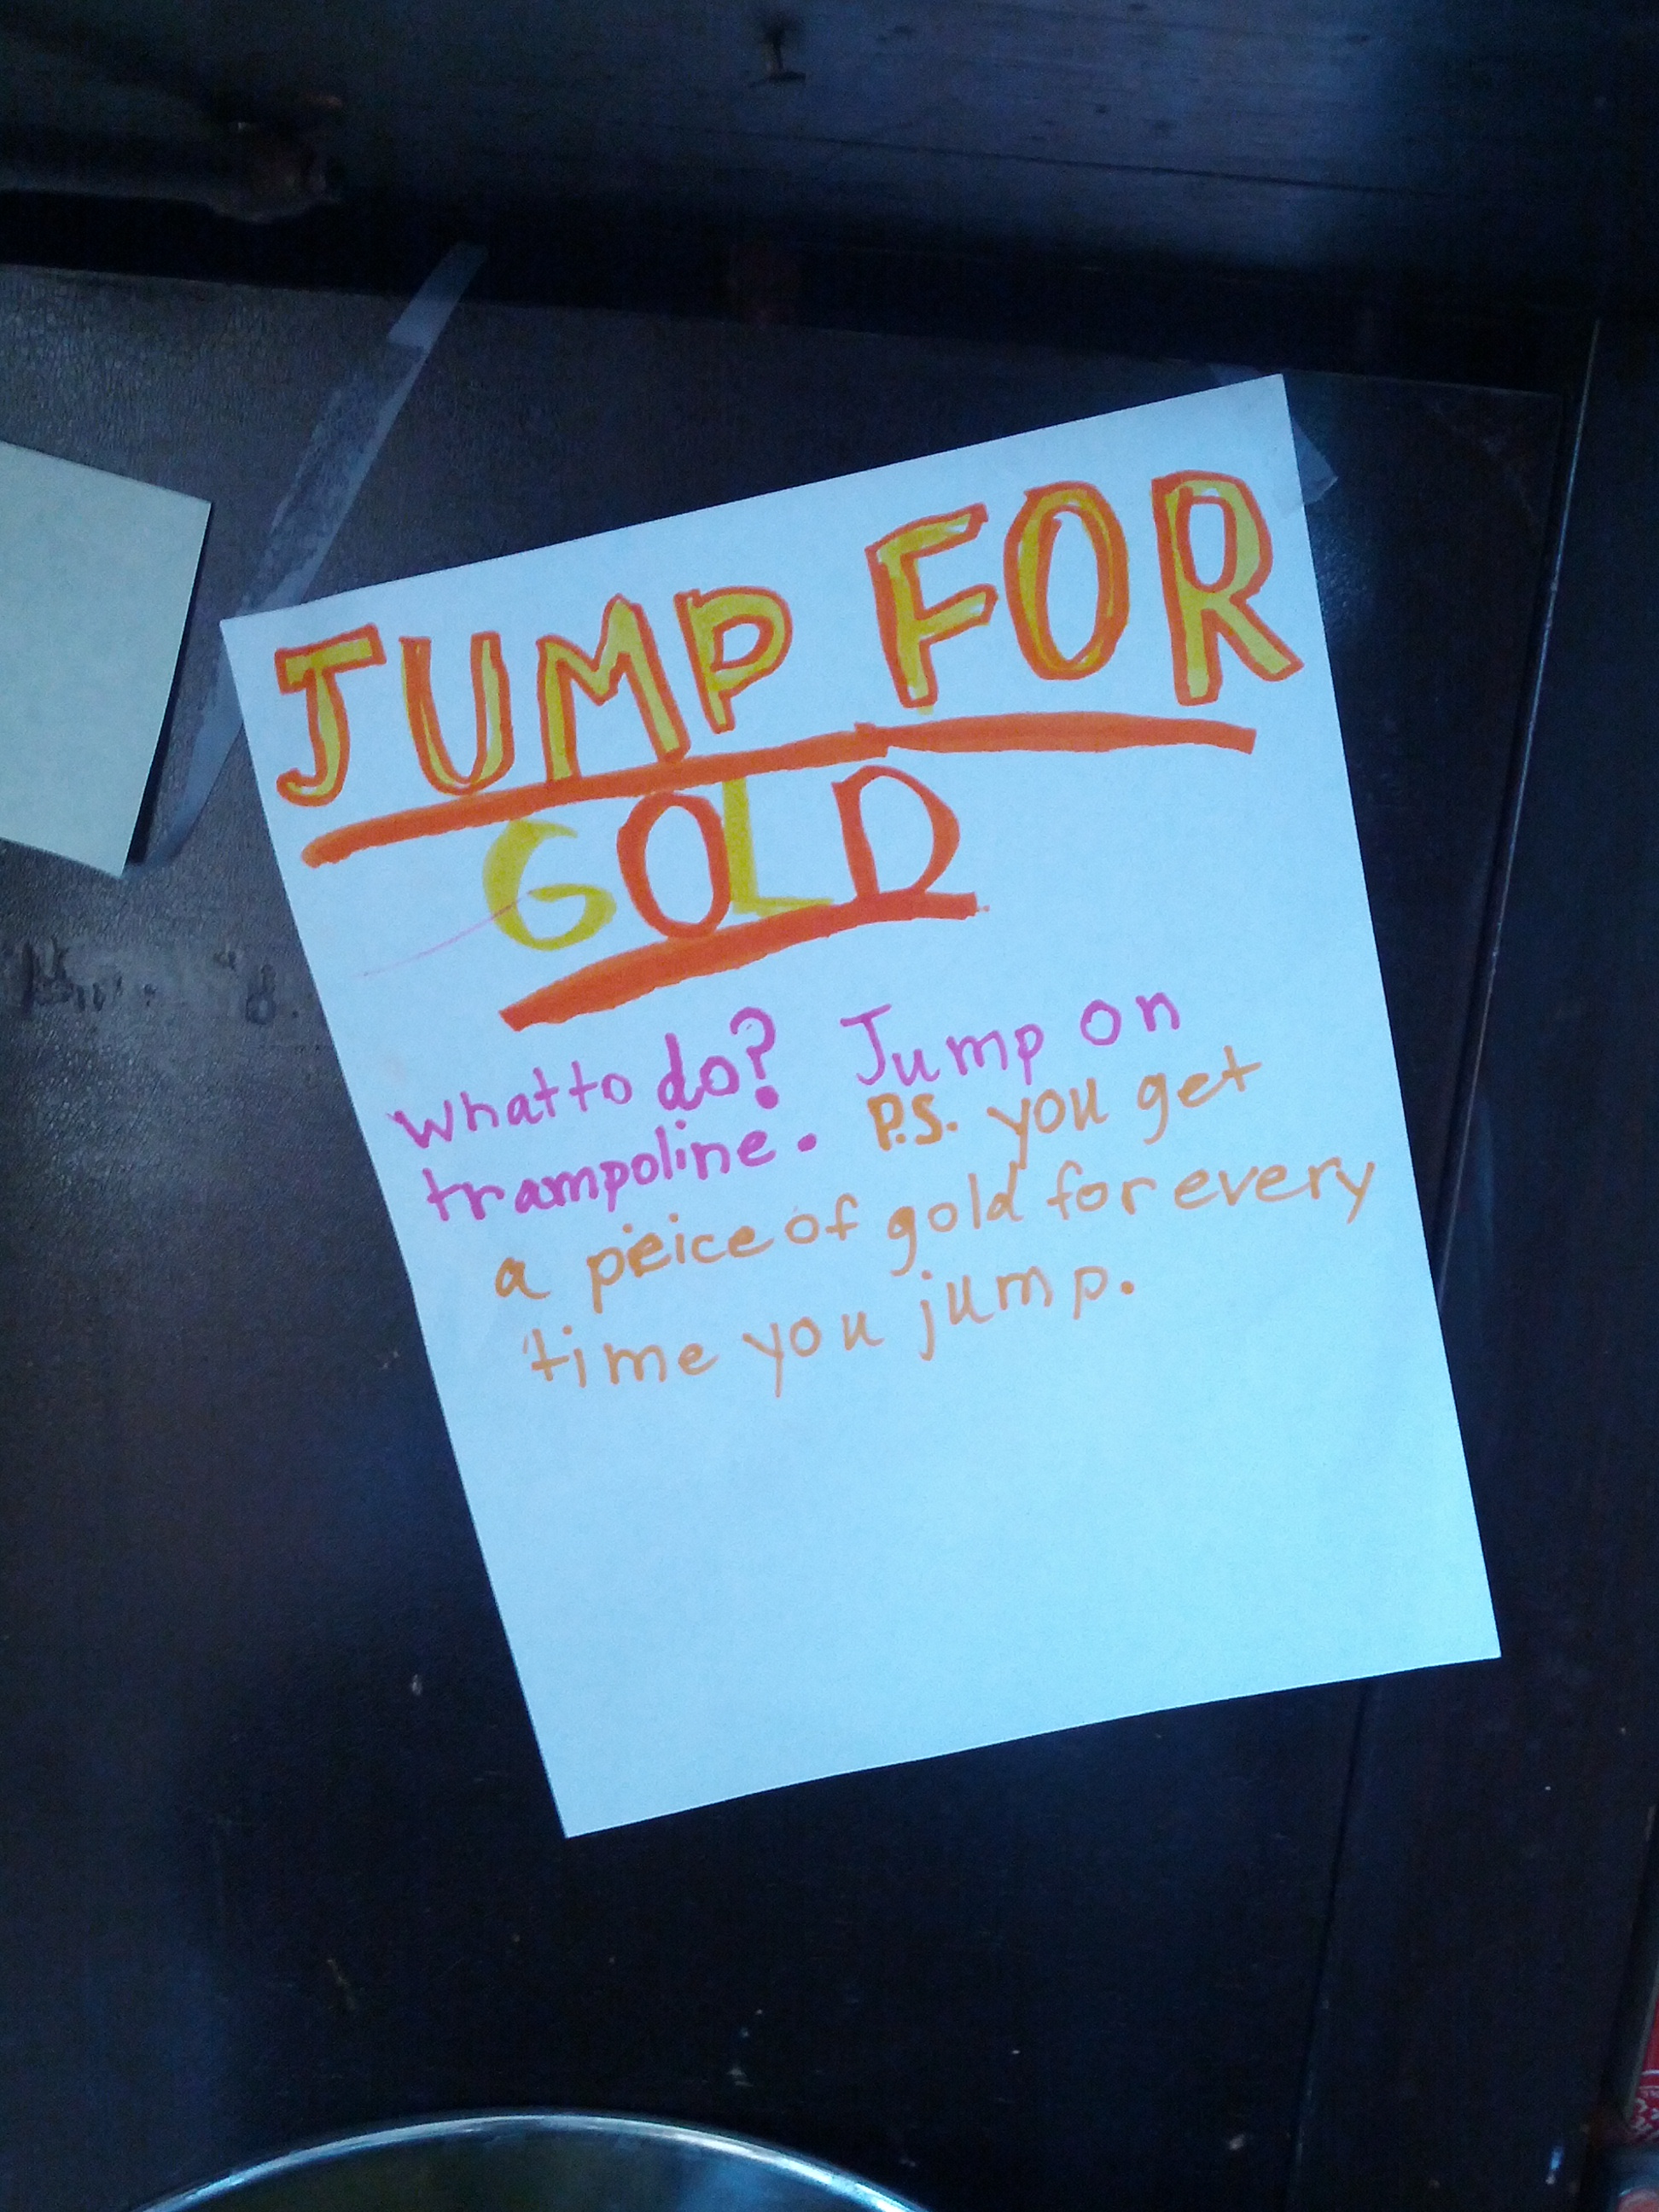 JUMP FOR
GOLD
What to do? Jump on
trampoline. P.S. you get
a peice of gold for every
time you jump.